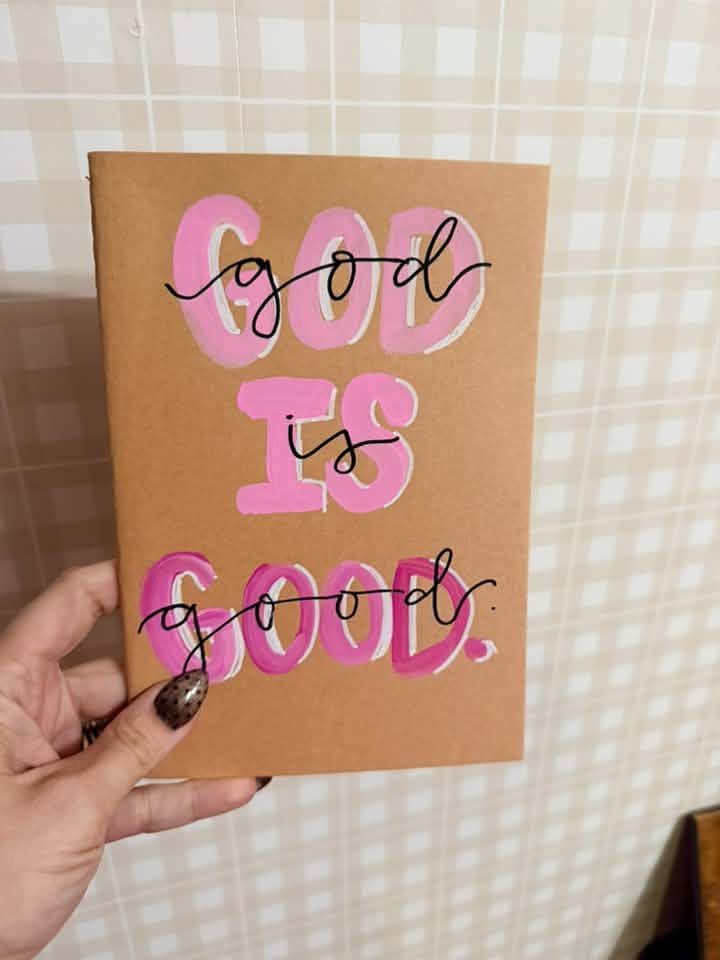 GOD
god
IS
is
GOOD.
good.